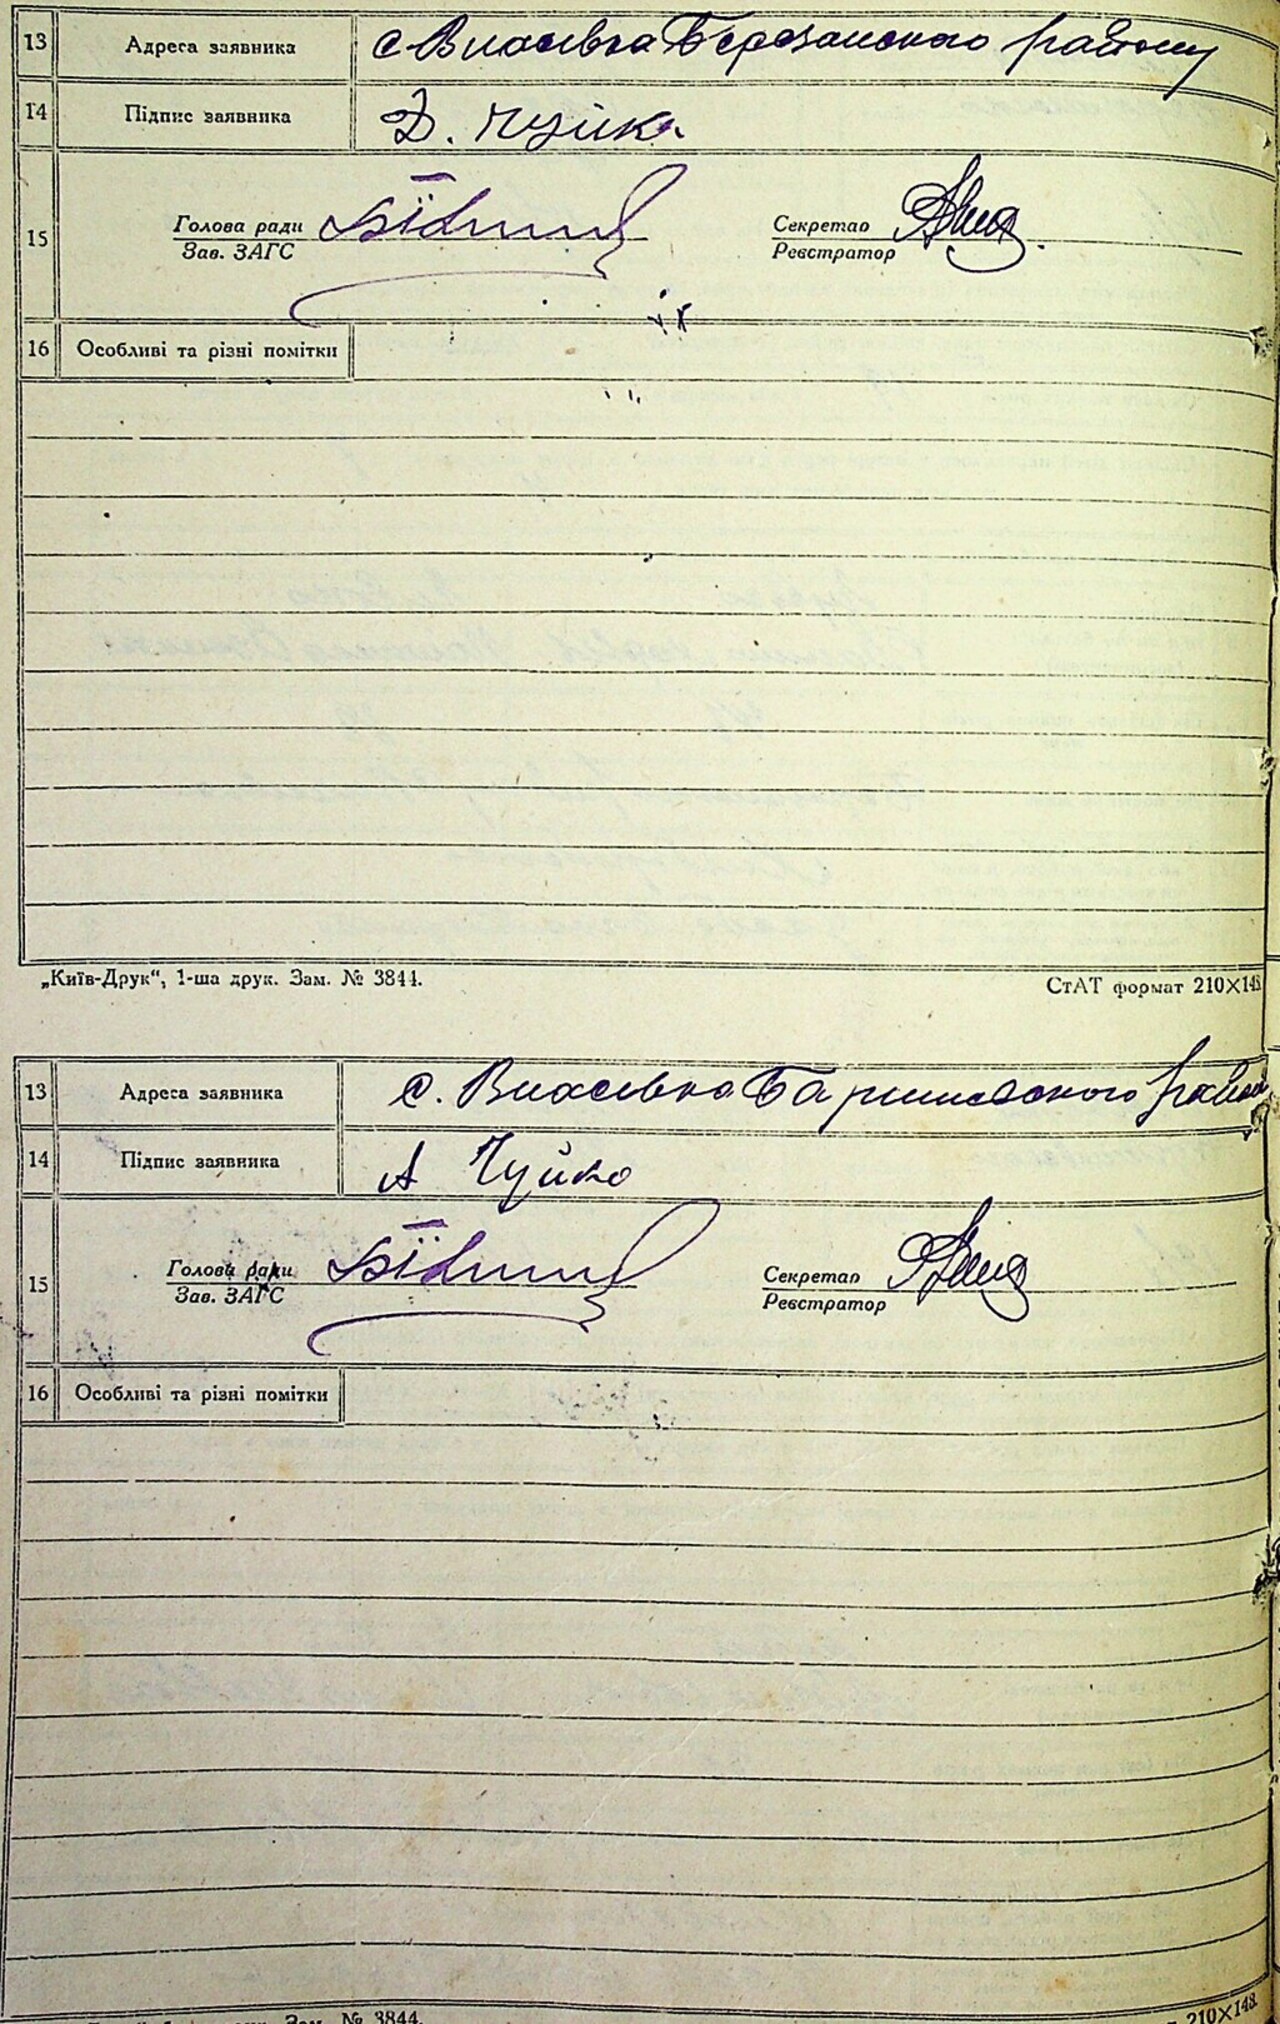 13 Адреса заявника с Власівка Березанського району
14 Підпис заявника Д. Чуйко
15 Голова ради Секретар
Зав. ЗАГС Реєстратор
16 Особливі та різні помітки
„Київ-Друк“, 1-ша друк. Зам. № 3844. СтАТ формат 210×148
13 Адреса заявника с. Власівка Баришевського район
14 Підпис заявника А Чуйко
15 Голова ради Секретар
Зав. ЗАГС Реєстратор
16 Особливі та різні помітки
Зам. № 3844. 210×148